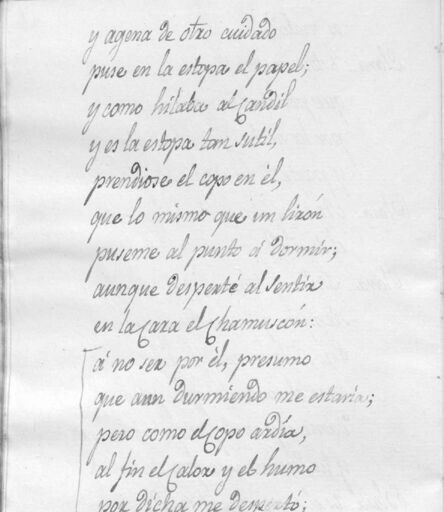 y agena de otro cuidado
puse en la estopa el papel;
y como hilaba al Candil
y es la estopa tan sutil,
prendiose el copo en él,
que lo mismo que un lirón
puseme al punto á dormir;
aunque desperté al sentir
en la Cara el Chamuscón:
á no ser por él, presumo
que aun durmiendo me estaria;
pero como el Copo ardía,
al fin el Calor y el humo
por dicha me despertó;